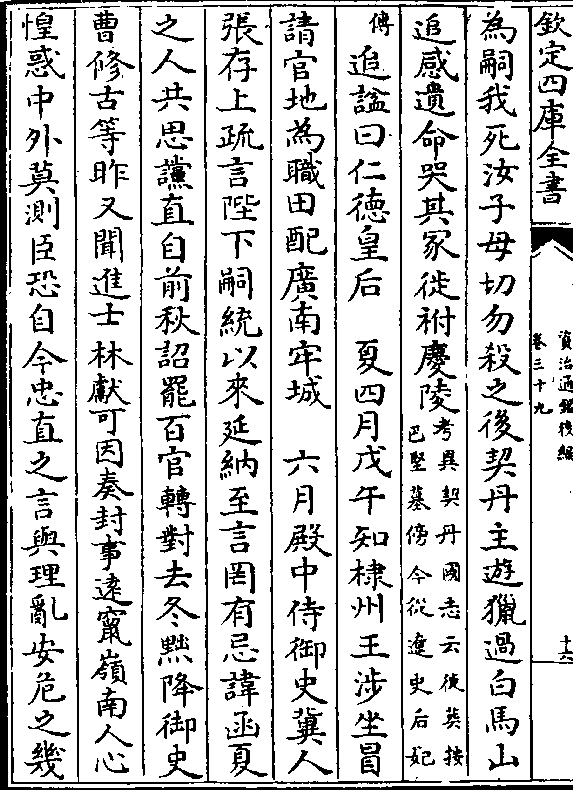 欽定四庫全書
資治通鑑後編
卷三十九
十六
為嗣我死汝子母切勿殺之後契丹主遊獵過白馬山
追感遺命哭其冢徙祔慶陵考異契丹國志云後葬按
巴堅墓傍今從遼史后妃
傳追諡曰仁德皇后　夏四月戊午知棣州王涉坐冒
請官地為職田配廣南牢城　六月殿中侍御史冀人
張存上疏言陛下嗣統以來延納至言罔有忌諱函夏
之人共思讜直自前秋詔罷百官轉對去冬黜降御史
曹修古等昨又聞進士林獻可因奏封事遠竄嶺南人心
惶惑中外莫測臣恐自今忠直之言與理亂安危之幾